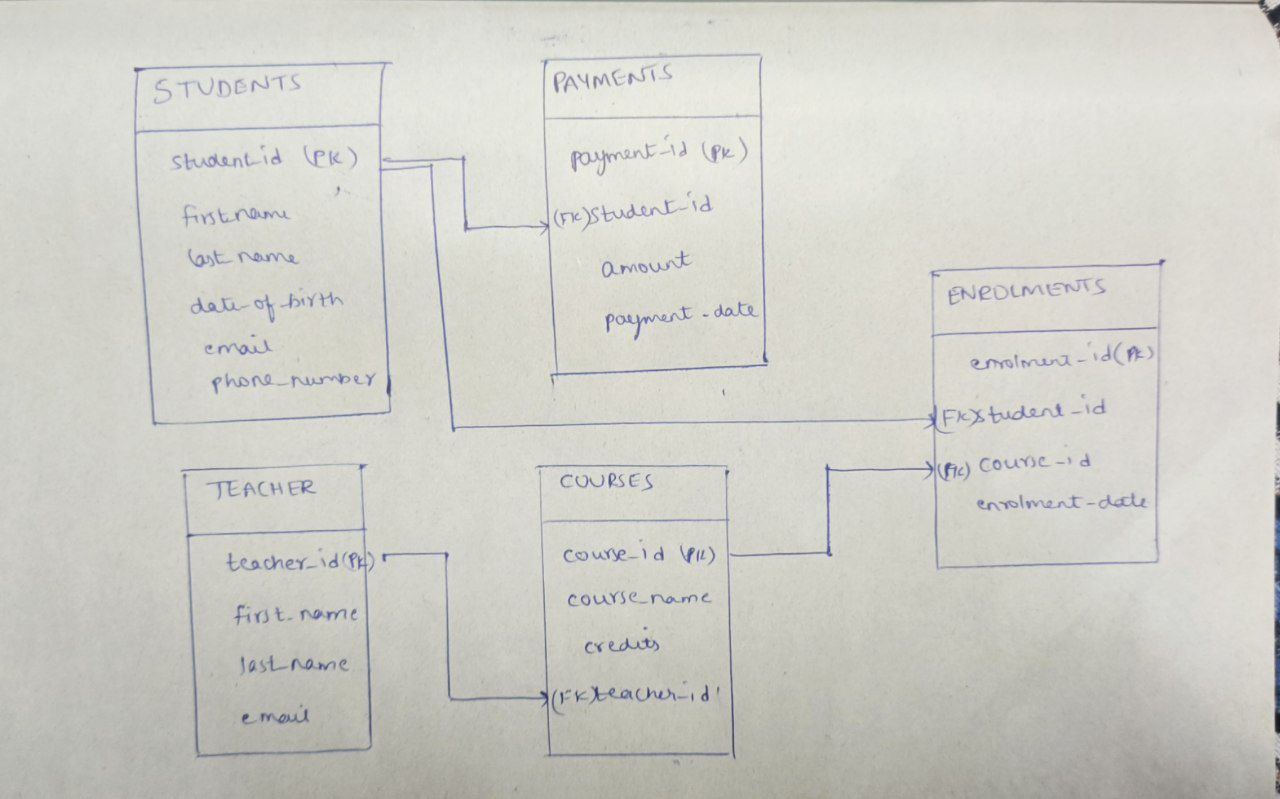 STUDENTS
student_id (PK)
first_name
last_name
date-of-birth
email
phone_number
PAYMENTS
payment_id (PK)
(FK)student_id
amount
payment-date
ENROLMENTS
enrolment-id(PK)
(FK)student-id
(FK) course-id
enrolment-date
TEACHER
teacher_id(PK)
first_name
last_name
email
COURSES
course_id (PK)
course_name
credits
(FK)teacher_id